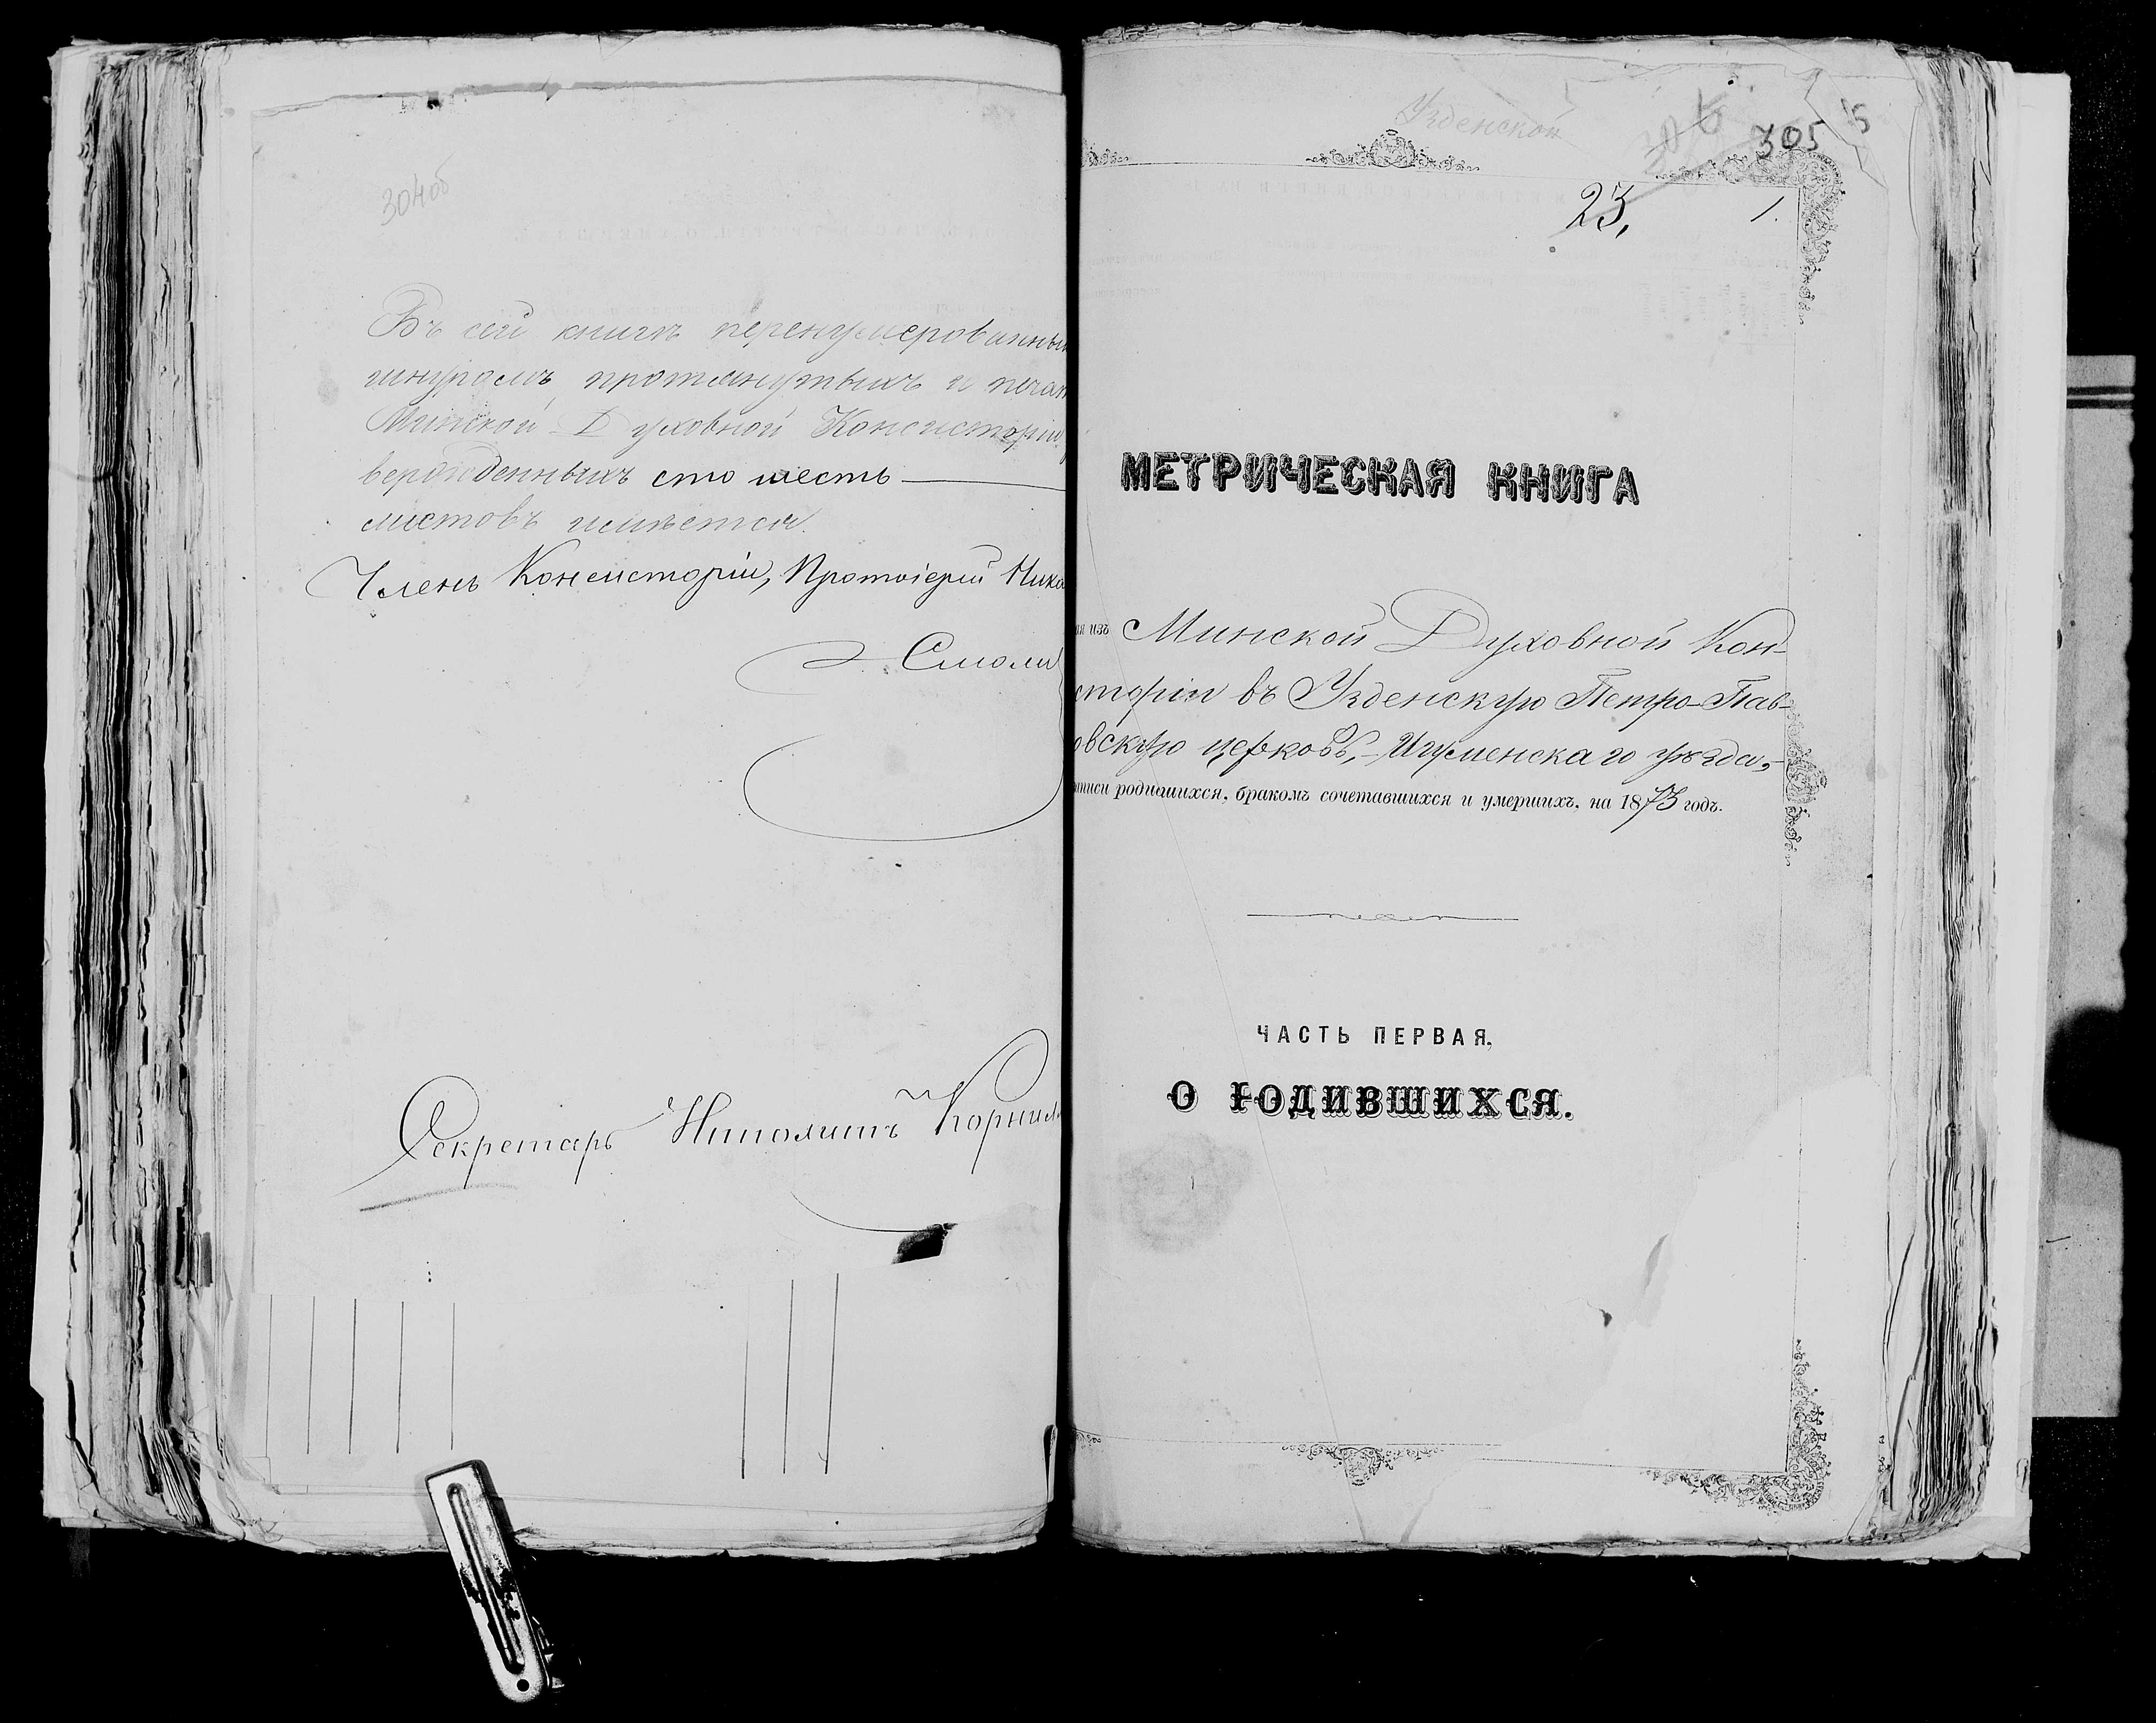 304об
Въ сей книгѣ перенумерованны
шнуромъ протянутыхъ и печат
Минской Духовной Консисторіи,
вержденныхъ сто шесть
листовъ имѣется.
Членъ Консисторіи, Протоіерей Нико
Смоли
Секретарь Ипполитъ Корнил
Узденской
305
23,
1.
МЕТРИЧЕСКАЯ КНИГА
ая изъ Минской Духовной Кон-
систоріи въ Узденскую Петро-Пав-
овскую церковь, Игуменскаго уѣзда,
писи родившихся, бракомъ сочетавшихся и умершихъ, на 1873 годъ.
ЧАСТЬ ПЕРВАЯ,
О РОДИВШИХСЯ.